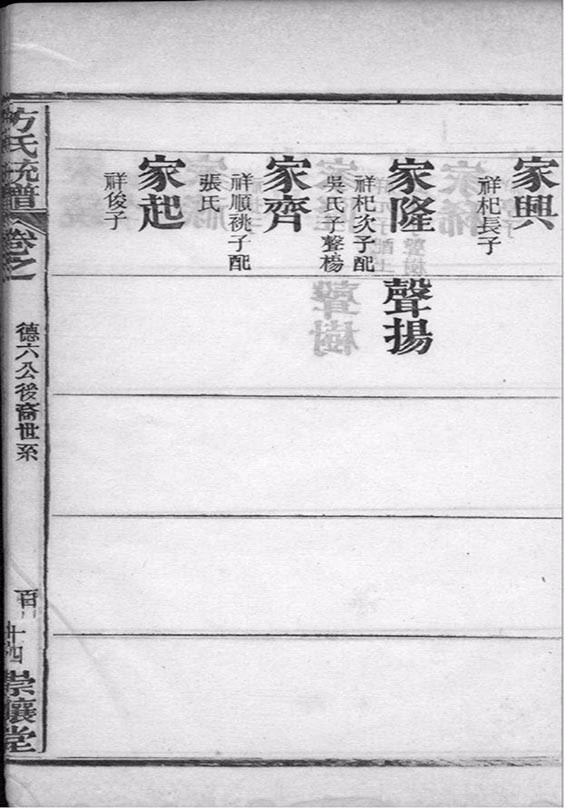 家興
祥杞長子
家隆
祥杞次子配
吳氏子聲楊
聲揚
家齊
祥順祧子配
張氏
家起
祥俊子
方氏統譜
卷之一
德六公後裔世系
百十四
崇讓堂